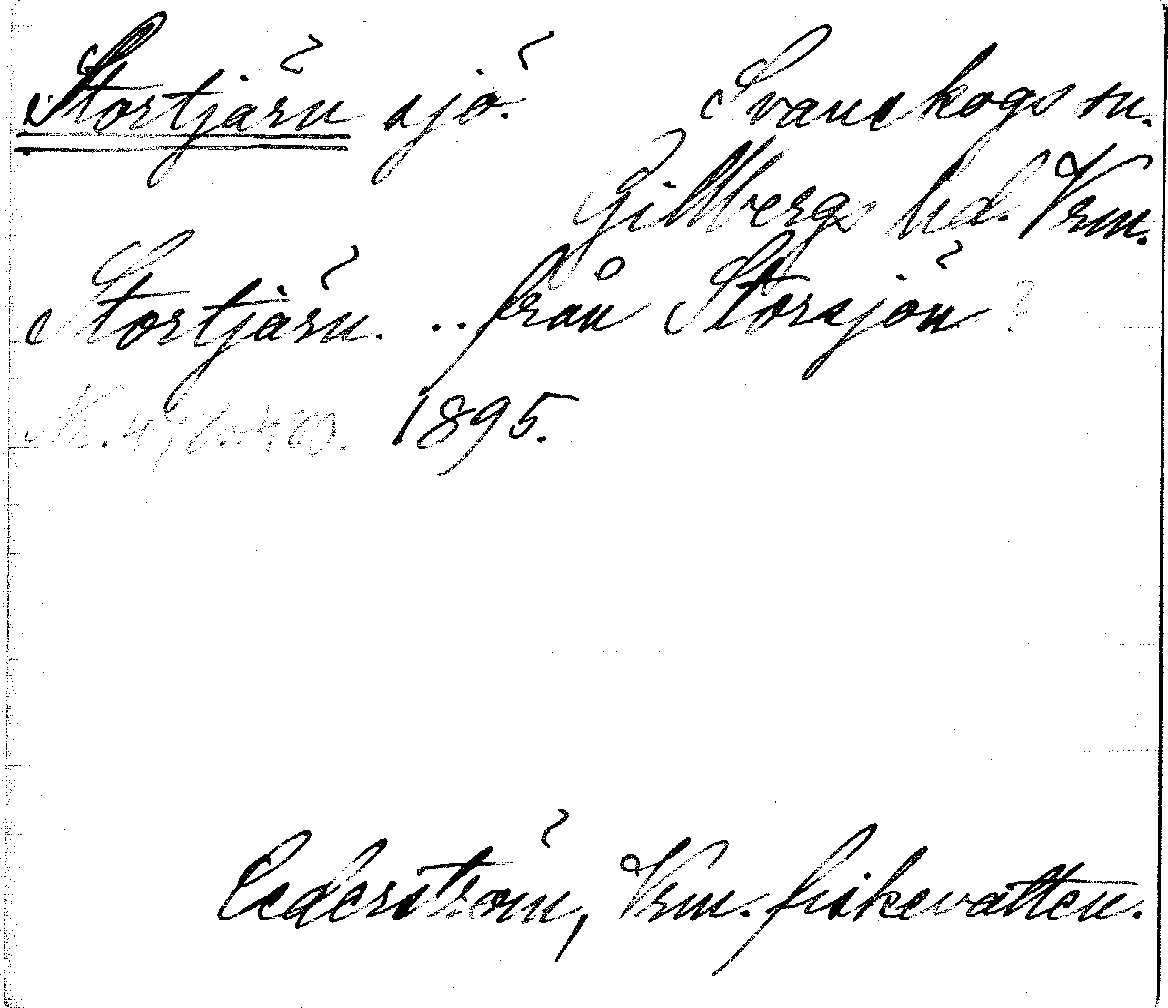 Stortjärn sjö. Svaneskogs sn.
Gillbergs hd. Vrm.
Stortjärn. .. från Storsjön ?
1895.
Cederström, Vrm. fiskevatten.